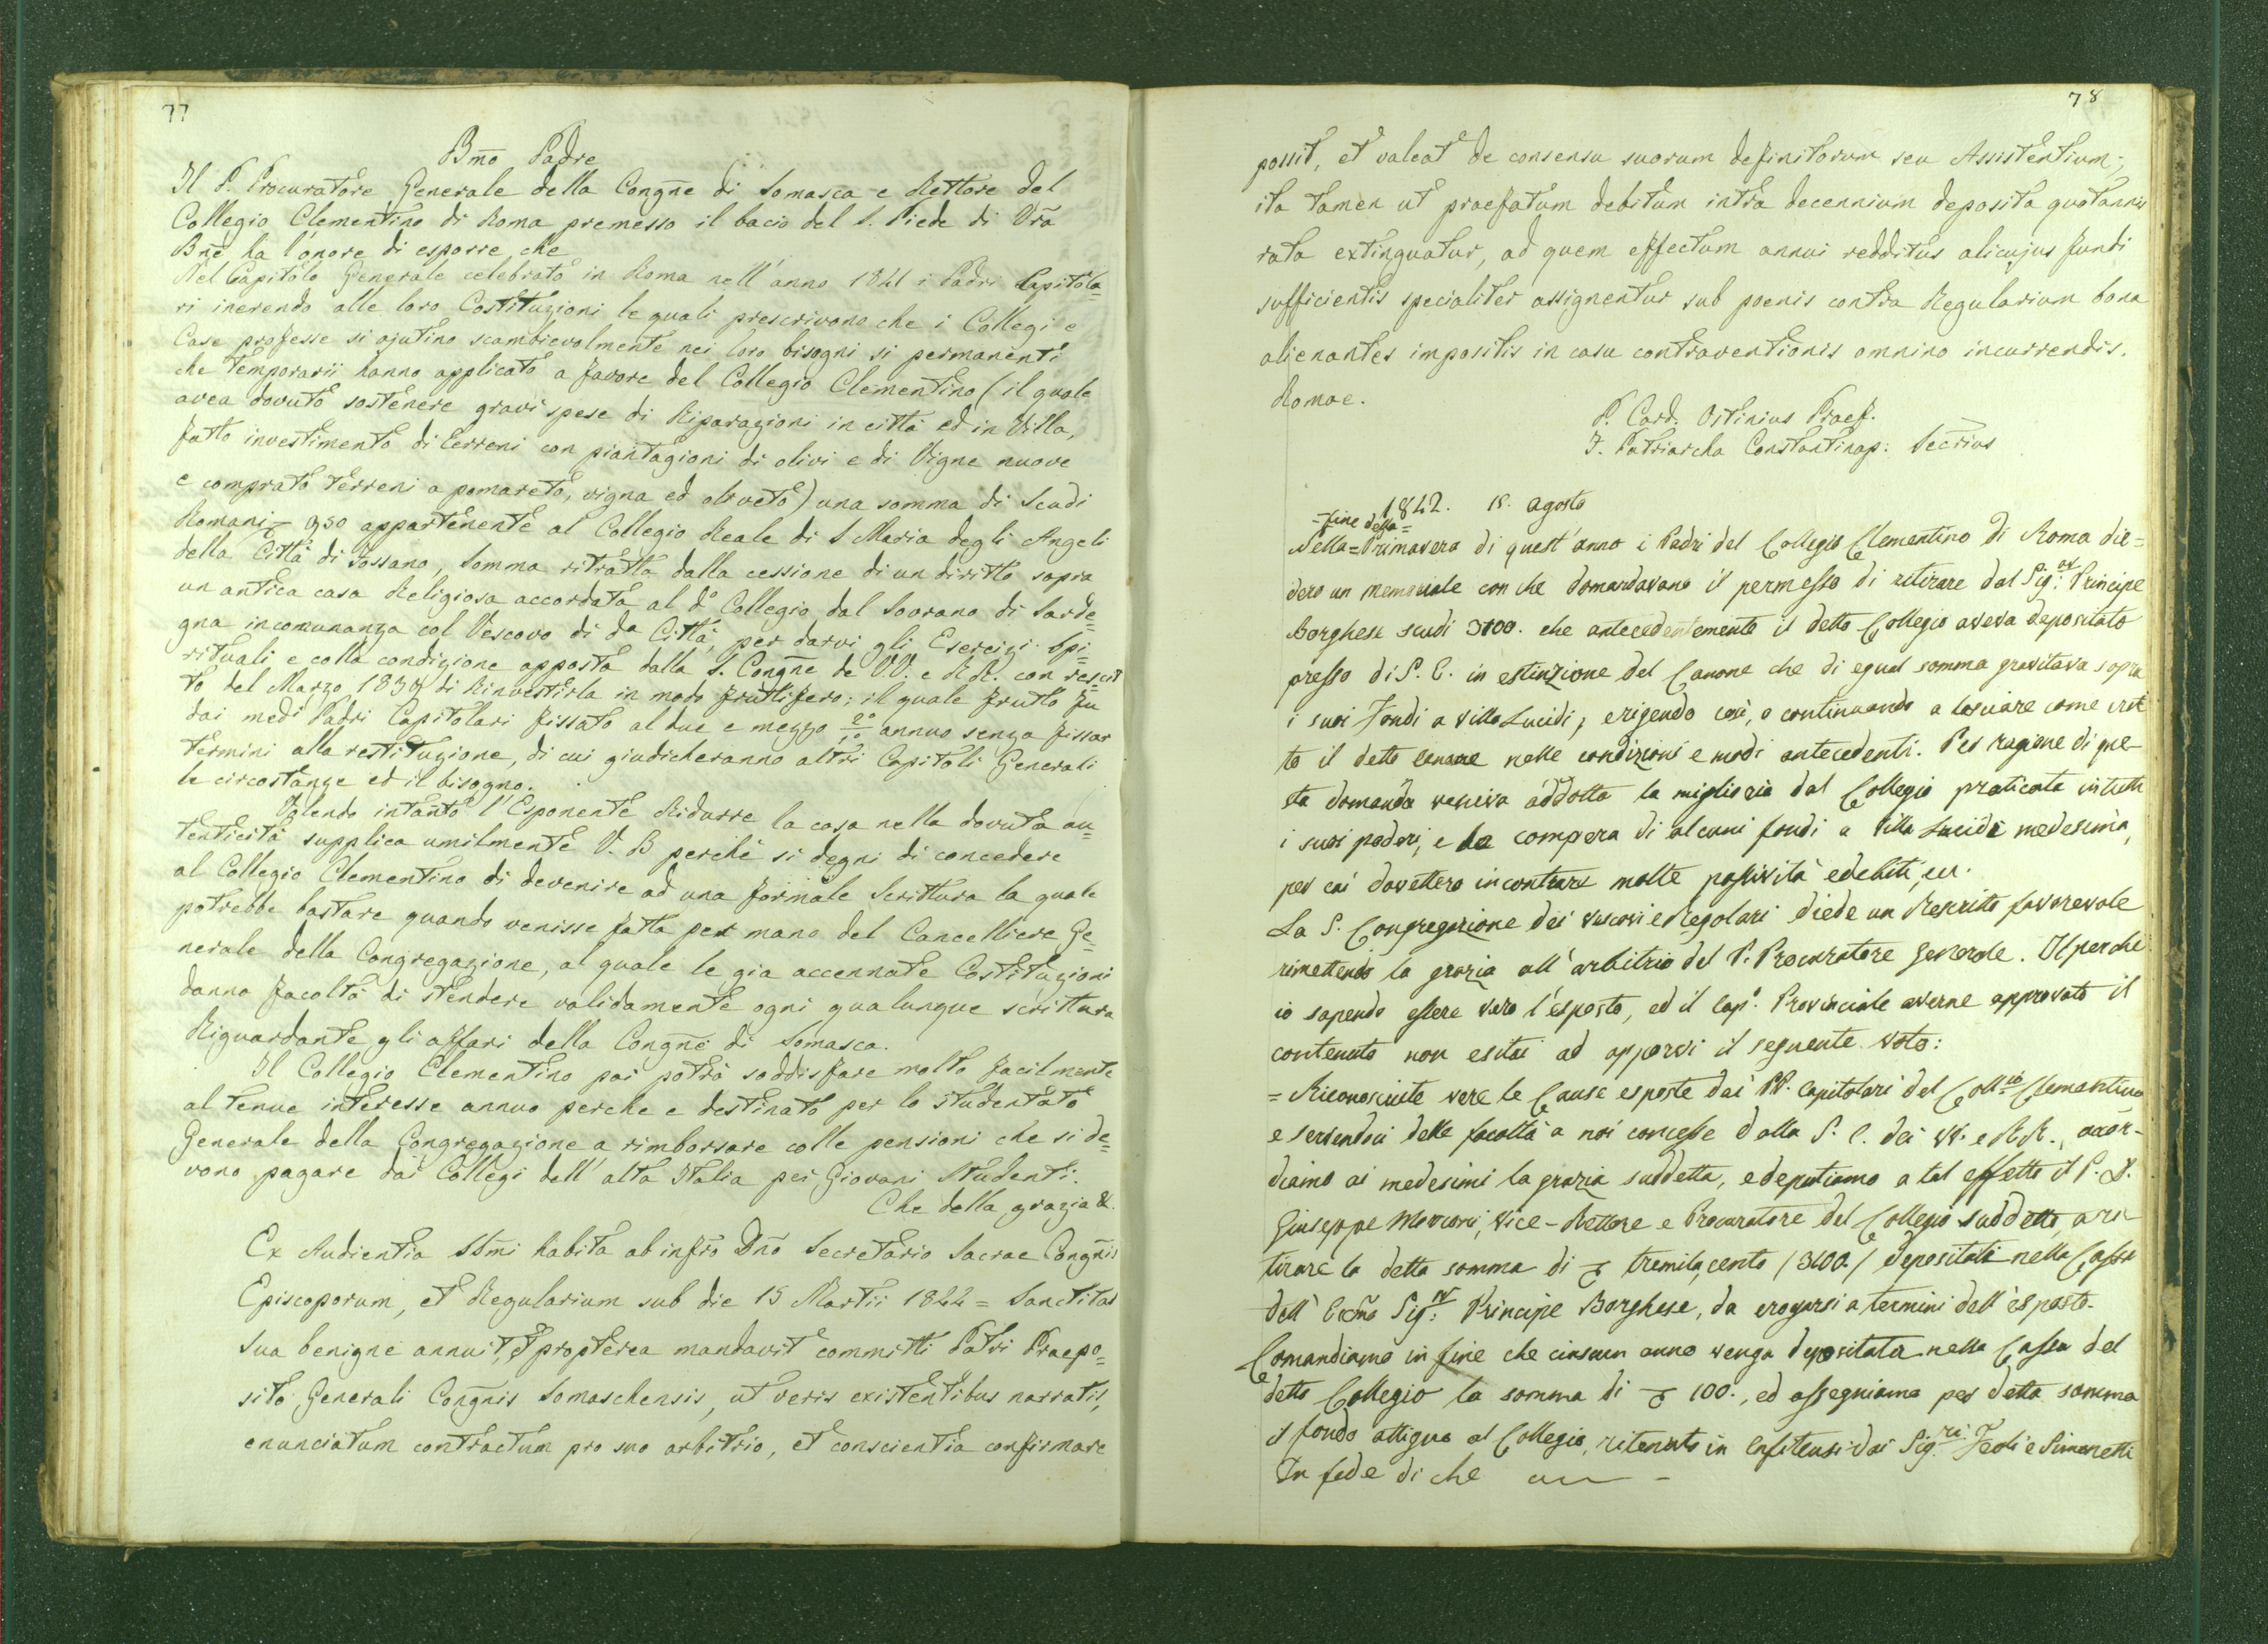 77
Bm̃o Padre
Il P. Procuratore Generale della Congñe di Somasca e Rettore del
Collegio Clementino di Roma premesso il bacio del S. Piede di Vrã
Bñe ha l'onore di esporre che
Nel Capitolo Generale celebrato in Roma nell'anno 1841 i Padri Capitola=
ri inerendo alle loro Costituzioni le quali prescrivono che i Collegi e
Case professe si ajutino scambievolmente nei loro bisogni si permanenti
che temporarii hanno applicato a favore del Collegio Clementino (il quale
avea dovuto sostenere gravi spese di Riparazioni in città ed in Villa,
fatto investimento di terreni con piantagioni di olivi e di Vigne nuove
e comprato terreni a pomareto, vigna ed oliveto) una somma di Scudi
Romani 950 appartenente al Collegio Reale di S Maria degli Angeli
della Città di Fossano, Somma ritratta dalla cessione di un diritto sopra
un antica casa Religiosa accordata al d.o Collegio dal Sovrano di Sarde=
gna incomunanza col Vescovo di da Città, per darvi gli Esercizi Spi=
rituali e colla condizione apposta dalla S. Congñe de VV. e RR. con rescrit
to del Marzo 1839 di Rinvestirla in modo fruttifero; il quale frutto fu
dai medi Padri Capitolari fissato al due e mezzo annuo senza fissar
termini alla restituzione, di cui giudicheranno altri Capitoli Generali
le circostanze ed il bisogno.
Volendo intanto l'Esponente Ridurre la cosa nella dovuta au=
tenticità supplica umilmente V. B perchè si degni di concedere
al Collegio Clementino di devenire ad una formale Scrittura la quale
potrebbe bastare quando venisse fatta per mano del Cancelliere Ge=
nerale della Congregazione, al quale le gia accennate Costituzioni
danno facoltà di stendere validamente ogni qualunque scrittura
Riguardante gli affari della Congñe di Somasca.
Il Collegio Clementino poi potrà soddisfare molto facilmente
al tenue interesse annuo perche e destinato per lo studentato
Generale della Congregazione a rimborsare colle pensioni che si de=
vono pagare dai Collegi dell'alta Italia pei Giovani Studenti.
Che della grazia &.
Ex Audientia SSmĩ habita ab infrõ Dnõ Secretario Sacrae Congñis
Episcoporum, et Regularium sub die 15 Martii 1844 = Sanctitas
Sua benigne annuit, et propterea mandavit committi Patri Praepo=
sito Generali Congñis Somaschensis, ut veris existentibus narratis,
enunciatum contractum pro suo arbitrio, et conscientia confirmare
78
possit, et valeat de consensu suorum definitorum seu Assistentium;
ita tamen ut praefatum debitum intra decennium deposita quotannis
rata extinguatur, ad quem effectum annui redditus alicujus fundi
sufficientis specialiter assignentur sub poenis contra Regularium bona
alienantes impositis in casu contraventionis omnino incurrendis.
Romae.
P. Card. Ostinius Praef.
J. Patriarcha Constantinop: Secrius
1842. 18. agosto
=fine della=
Nella=Primavera di quest'anno i Padri del Collegio Clementino di Roma die=
dero un memoriale con che domandavano il permesso di ritirare dal Sig:or Principe
Borghese scudi 3100. che antecedentemente il detto Collegio aveva depositato
presso di S. E. in estinzione del Canone che di egual somma gravitava sopra
i suoi Fondi a Villa Lucidi, erigendo così, o continuando a lasciare come eret
to il detto canone nelle condizioni e modi antecedenti. Per ragione di que-
sta domanda veniva addotta la miglioria dal Collegio praticata in tutti
i suoi poderi, e la compera di alcuni fondi a Villa Lucidi medesima,
per cui dovettero incontrare molte passività e debiti,
La S. Congregazione dei Vescovi e Regolari diede un Rescritto favorevole
rimettendo la grazia all'arbitrio del P. Procuratore Generale. Il perchè
io sapendo essere vero l'esposto, ed il Cap.o Provinciale averne approvato il
contenuto non esitai ad apporvi il seguente voto:
= Riconosciute vere le Cause esposte dai PP. Capitolari del Coll.io Clementino
e servendoci delle facoltà a noi concesse dalla S. C. dei VV. e RR., accor-
diamo ai medesimi la grazia suddetta, e deputiamo a tal effetto il P. D.
Giuseppe Marconi, Vice-Rettore e Procuratore del Collegio suddetto a ri
tirare la detta somma di tremila,cento /3100./ depositati nella Cassa
dell'Eccm̃o Sig:or Principe Borghese, da erogarsi a termini dell'esposto.
Comandiamo in fine che ciascun anno venga depositata nella Cassa del
detto Collegio la somma di 100., ed assegniamo per detta somma
il fondo attiguo al Collegio, ritenuto in Enfiteusi dai Sig.ri Feoli e Simonetti
In fede di che